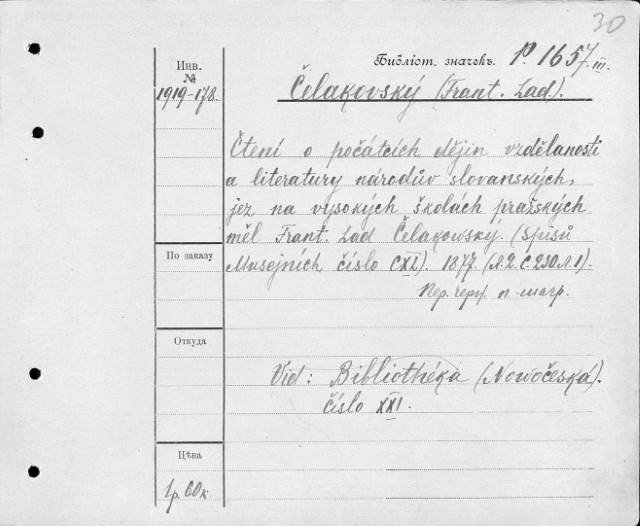 30
Инв.
№
1919-178.
Библіот. значекъ. P. 1657. III.
Čelakovský (Frant. Lad).
Čtení o počátcích dějin vzdělanosti
a literatury národův slovanských,
jez na vysokých školách pražských
měl Frant. Lad Čelakowsky. (Spisů
Musejních číslo CXL). 1877.
По заказу
Откуда
Vid: Bibliothéka (Nowočeská).
číslo XXI.
Цѣна
1р. 60к.